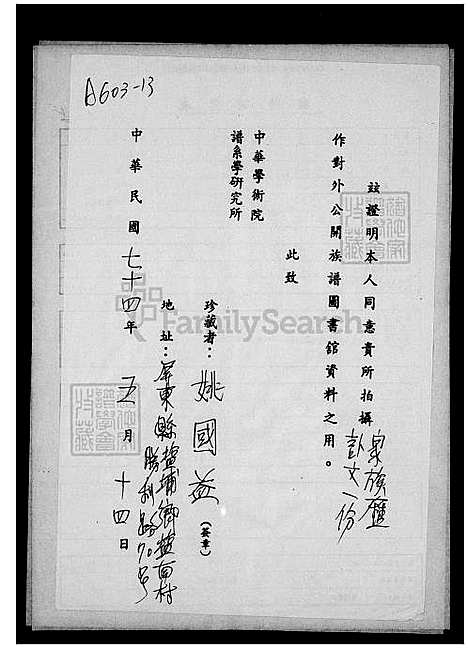 A603-13
茲證明本人同意貴所拍攝泉族匯
彭文一份
作對外公開族譜圖書館資料之用。
此致
中華學術院
譜系學研究所
珍藏者：姚國益（簽章）
地址：屏東縣鹽埔鄉鹽南村
勝利路70号
中華民國七十四年五月十四日
FamilySearch